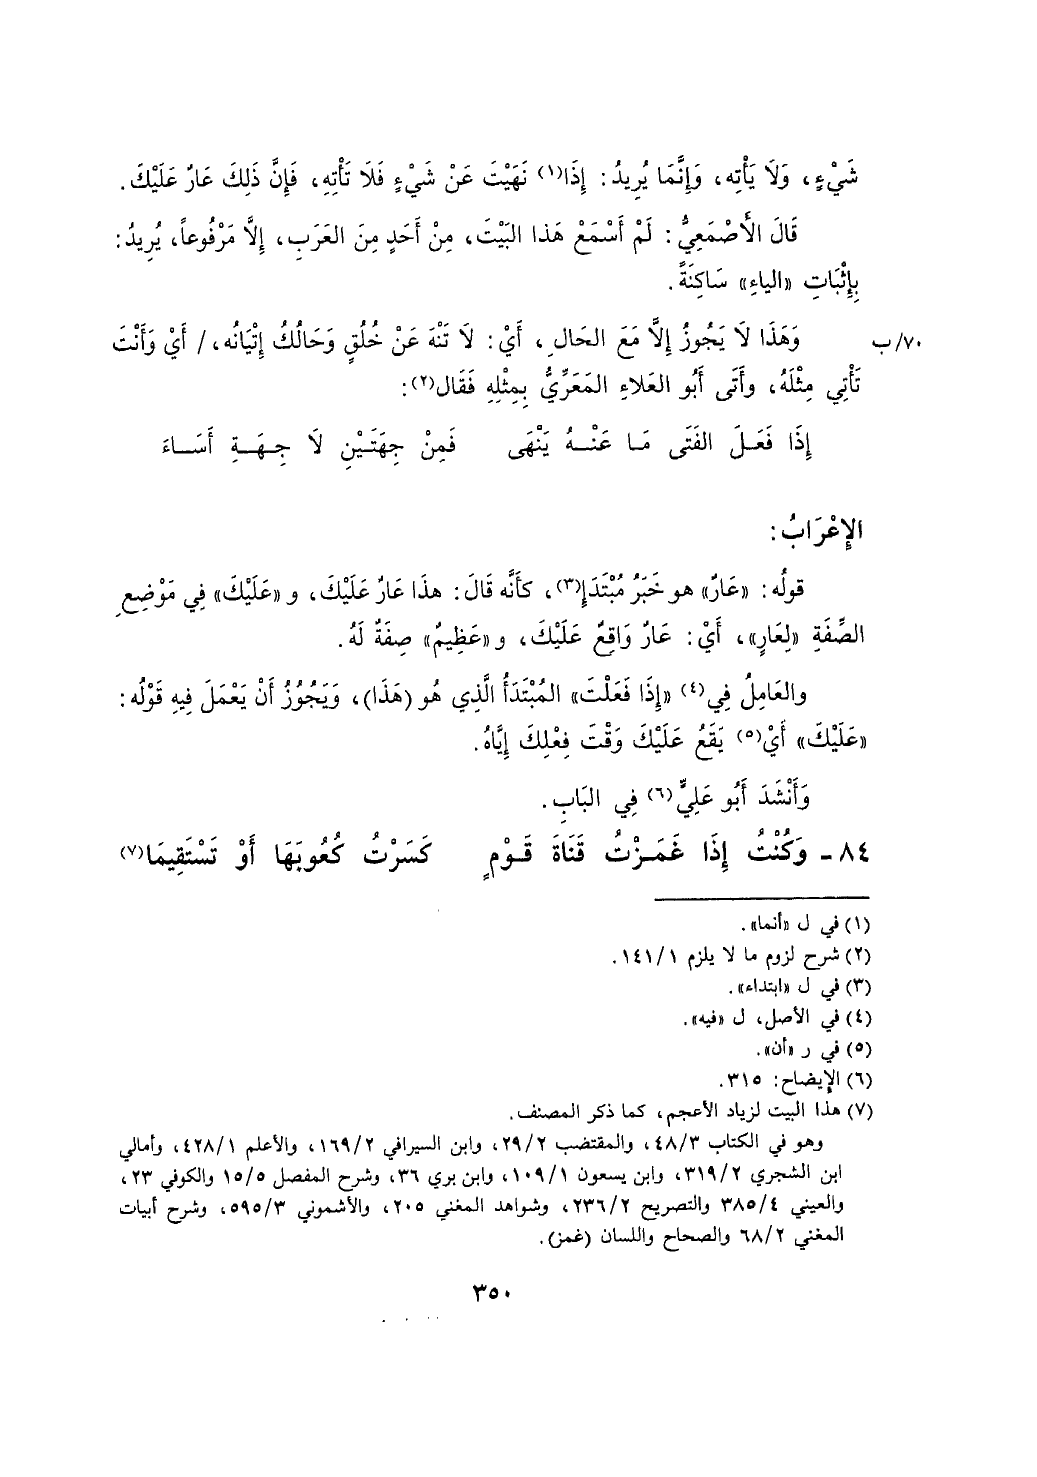 شَيْءٍ، وَلَا يَأْتِه، وَإِنَّمَا يُرِيدُ: إِذَا(١) نَهَيْتَ عَنْ شَيْءٍ فَلَا تَأْتِهِ، فَإِنَّ ذَلِكَ عَارٌ عَلَيْكَ.
قَالَ الأَصْمَعِيُّ: لَمْ أَسْمَعْ هَذا البَيْتَ، مِنْ أَحَدٍ مِنَ العَرَبِ، إِلَّا مَرْفُوعاً، يُرِيدُ:
بِإِثْبَاتِ «الياءِ» سَاكِنَةً.
٧٠/ب وَهَذَا لَا يَجُوزُ إِلَّا مَعَ الحَالِ، أَيْ: لَا تَنْهَ عَنْ خُلُقٍ وَحَالُكُ إِتْيَانُه، / أَيْ وَأَنْتَ
تَأْتِي مِثْلَهُ، وأَتَى أَبُو العَلَاءِ المَعَرِّيُّ بِمِثْلِهِ فَقَال(٢):
إِذَا فَعَلَ الفَتَى مَا عَنْهُ يَنْهَى فَمِنْ جِهَتَيْنِ لَا جِهَةٍ أَسَاءَ
الإِعْرَابُ:
قولُه: «عَارٌ» هو خَبَرُ مُبْتَدَإٍ(٣)، كأَنَّه قَالَ: هذَا عَارٌ عَلَيْكَ، و «عَلَيْكَ» فِي مَوْضِعِ
الصِّفَةِ «لِعَارٍ»، أَيْ: عَارٌ وَاقِعٌ عَلَيْكَ، و «عَظِيمٌ» صِفَةٌ لَهُ.
والعَامِلُ فِي(٤) «إِذَا فَعَلْتَ» المُبْتَدَأُ الَّذِي هُو (هَذَا)، وَيَجُوزُ أَنْ يَعْمَلَ فِيهِ قَوْلُه:
«عَلَيْكَ» أَيْ(٥) يَقَعُ عَلَيْكَ وَقْتَ فِعْلِكَ إِيَّاهُ.
وَأَنْشَدَ أَبُو عَلِيٍّ(٦) فِي البَابِ.
٨٤ - وَكُنْتُ إِذَا غَمَزْتُ قَنَاةَ قَوْمٍ كَسَرْتُ كُعُوبَهَا أَوْ تَسْتَقِيمَا(٧)
(١) في ل «أنما».
(٢) شرح لزوم ما لا يلزم ١/ ١٤١.
(٣) في ل «ابتداء».
(٤) في الأصل، ل «فيه».
(٥) في ر «أن».
(٦) الإيضاح: ٣١٥.
(٧) هذا البيت لزياد الأعجم، كما ذكر المصنف.
وهو في الكتاب ٤٨/٣، والمقتضب ٢٩/٢، وابن السيرافي ١٦٩/٢، والأعلم ٤٢٨/١، وأمالي
ابن الشجري ٣١٩/٢، وابن يسعون ١٠٩/١، وابن بري ٣٦، وشرح المفصل ١٥/٥ والكوفي ٢٣،
والعيني ٣٨٥/٤ والتصريح ٢٣٦/٢، وشواهد المغني ٢٠٥، والأشموني ٥٩٥/٣، وشرح أبيات
المغني ٦٨/٢ والصحاح واللسان (غمز).
٣٥٠